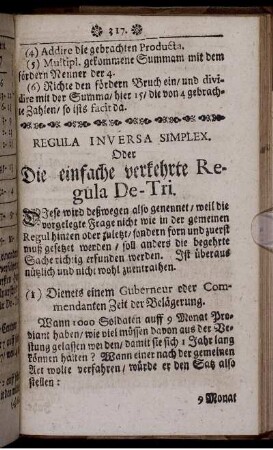 317.
(4) Addire die gebrachten Producta.
(5) Multipl. gekommene Summam mit dem
fördern Nenner der 4.
(6) Richte den fördern Bruch ein/ und divi-
dire mit der Summa/ hier 15/ die von 4 gebrach-
te Zahlen/ so ists facit da.
REGULA INVERSA SIMPLEX.
Oder
Die einfache verkehrte Re-
gula De-Tri.
Diese wird deßwegen also genennet/ weil die
vorgelegte Frage nicht wie in der gemeinen
Regul hinten oder zuletz/ sondern forn und zuerst
muß gesetzt werden/ soll anders die begehrte
Sache richtig erfunden werden. Ist überaus
nützlich und nicht wohl zuentrathen.
(1) Dienets einem Guberneur oder Com-
mendanten Zeit der Belägerung.
Wann 1000 Soldaten auff 9 Monat Pro-
viant haben/ wie viel müssen davon aus der Ve-
stung gelassen werden/ damit sie sich 1 Jahr lang
können halten? Wann einer nach der gemeinen
Art wolte verfahren/ würde er den Satz also
stellen:
9 Monat